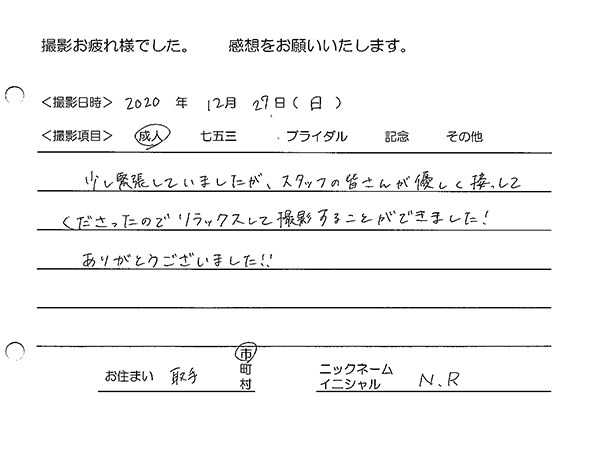 撮影お疲れ様でした。 感想をお願いいたします。
<撮影日時> 2020 年 12月 27日(日)
<撮影項目> 成人 七五三 ブライダル 記念 その他
少し緊張していましたが、スタッフの皆さんが優しく接して
くださったのでリラックスして撮影することができました!
ありがとうございました!!
お住まい 取手 市 町 村
ニックネーム イニシャル N.R